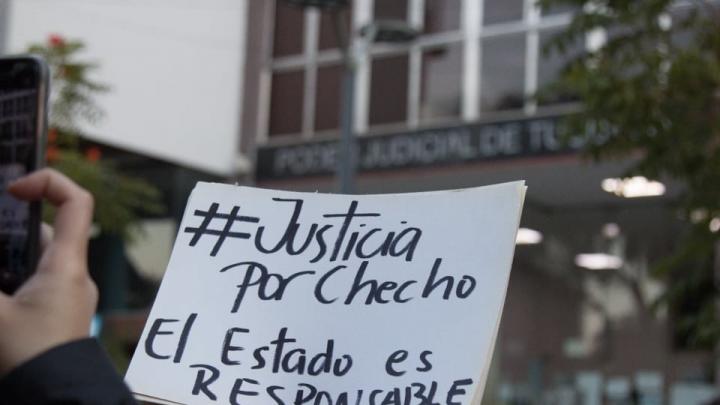 PODER JUDICIAL DE TU
#Justicia
Por Checho
El Estado es
RESPONSABLE